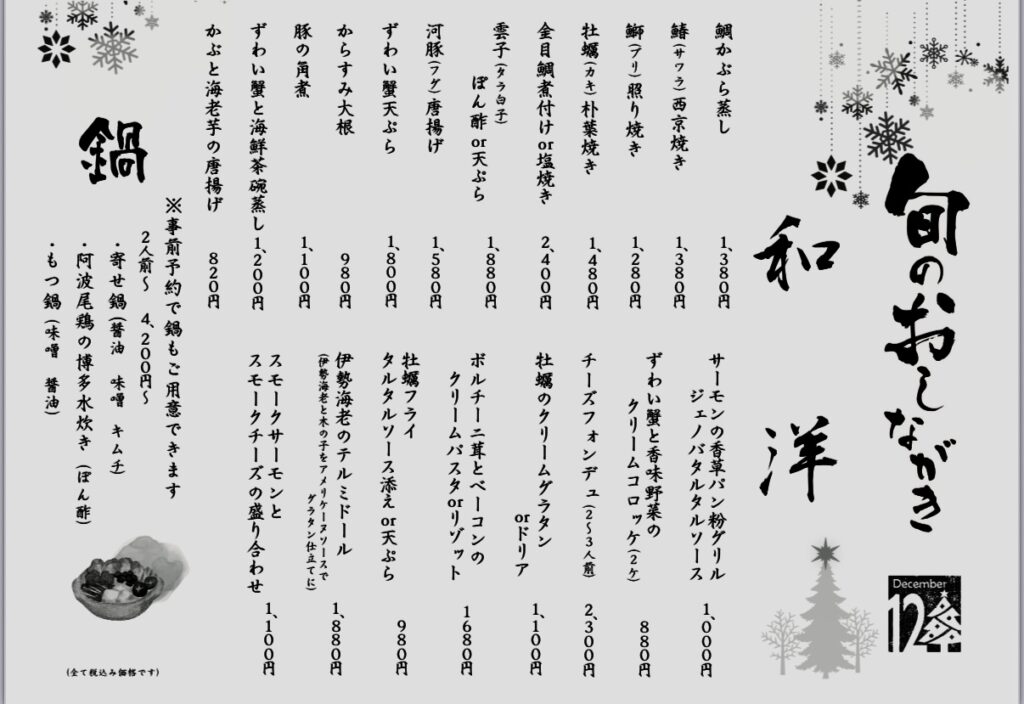 旬のおしながき
December
12
和
鯛かぶら蒸し 1,380円
鰆(サワラ)西京焼き 1,380円
鰤(ブリ)照り焼き 1,280円
牡蠣(カキ)朴葉焼き 1,480円
金目鯛煮付けor塩焼き 2,400円
雲子(タラ白子)
ぽん酢or天ぷら 1,880円
河豚(フグ)唐揚げ 1,580円
ずわい蟹天ぷら 1,800円
からすみ大根 980円
豚の角煮 1,100円
ずわい蟹と海鮮茶碗蒸し 1,200円
かぶと海老芋の唐揚げ 820円
洋
サーモンの香草パン粉グリル
ジェノバタルタルソース 1,000円
ずわい蟹と香味野菜の
クリームコロッケ(2ケ) 880円
チーズフォンデュ(2〜3人前) 2,300円
牡蠣のクリームグラタン
orドリア 1,100円
ポルチーニ茸とベーコンの
クリームパスタorリゾット 1680円
牡蠣フライ
タルタルソース添えor天ぷら 980円
伊勢海老のテルミドール 1,880円
(伊勢海老と木の子をアメリケーヌソースで
グラタン仕立てに)
スモークサーモンと
スモークチーズの盛り合わせ 1,100円
鍋
※事前予約で鍋もご用意できます
2人前〜 4,200円〜
・寄せ鍋(醤油 味噌 キムチ)
・阿波尾鶏の博多水炊き(ぽん酢)
・もつ鍋(味噌 醤油)
(全て税込み価格です)